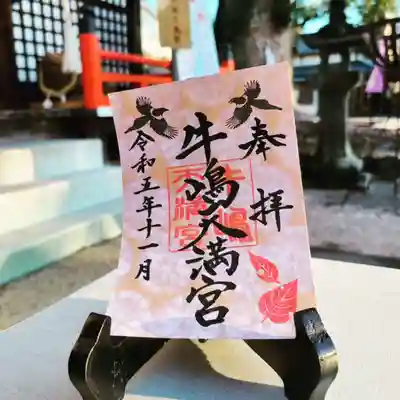 奉拝
牛嶋天満宮
令和五年十一月